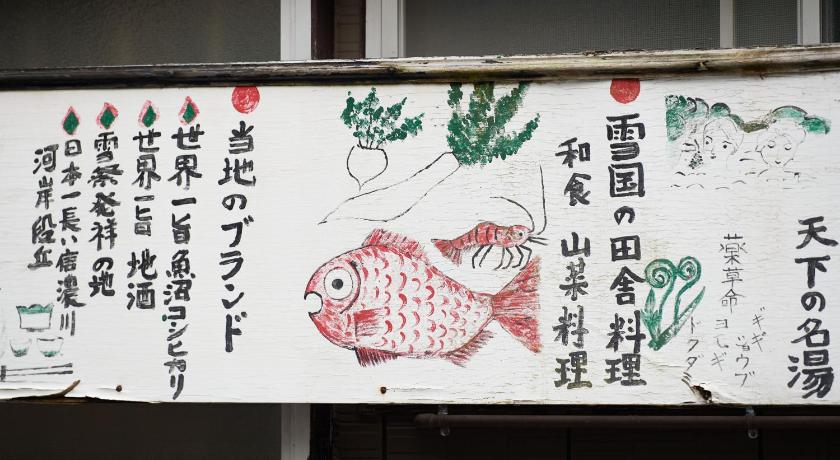 天下の名湯
ショウブ
ヨモギ
ドクダミ
雪国の田舎料理
和食 山菜料理
当地のブランド
世界一旨魚沼コシヒカリ
世界一旨 地酒
雪祭発祥の地
日本一長い信濃川
河岸段丘